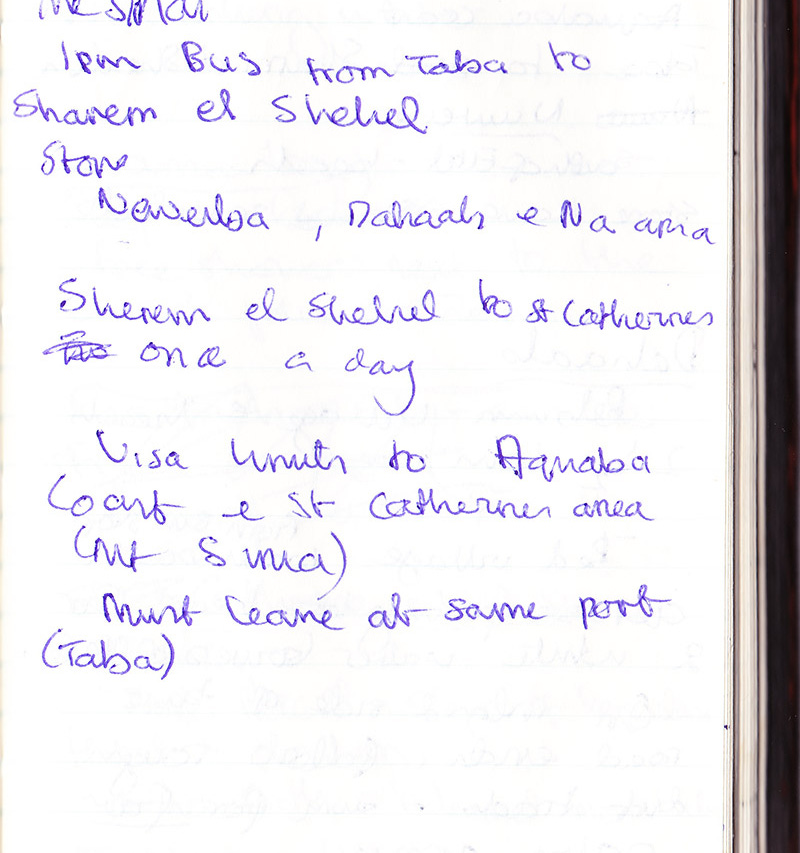 1pm Bus from Taba to
Sharem el Shehel
Stops
Neweiba, Dahaab & Na ama
Sherem el Shehel to St Catherines
once a day
Visa limits to Aquaba
Coast & St Catherines area
(Mt Sinia)
Must leave at same port
(Taba)